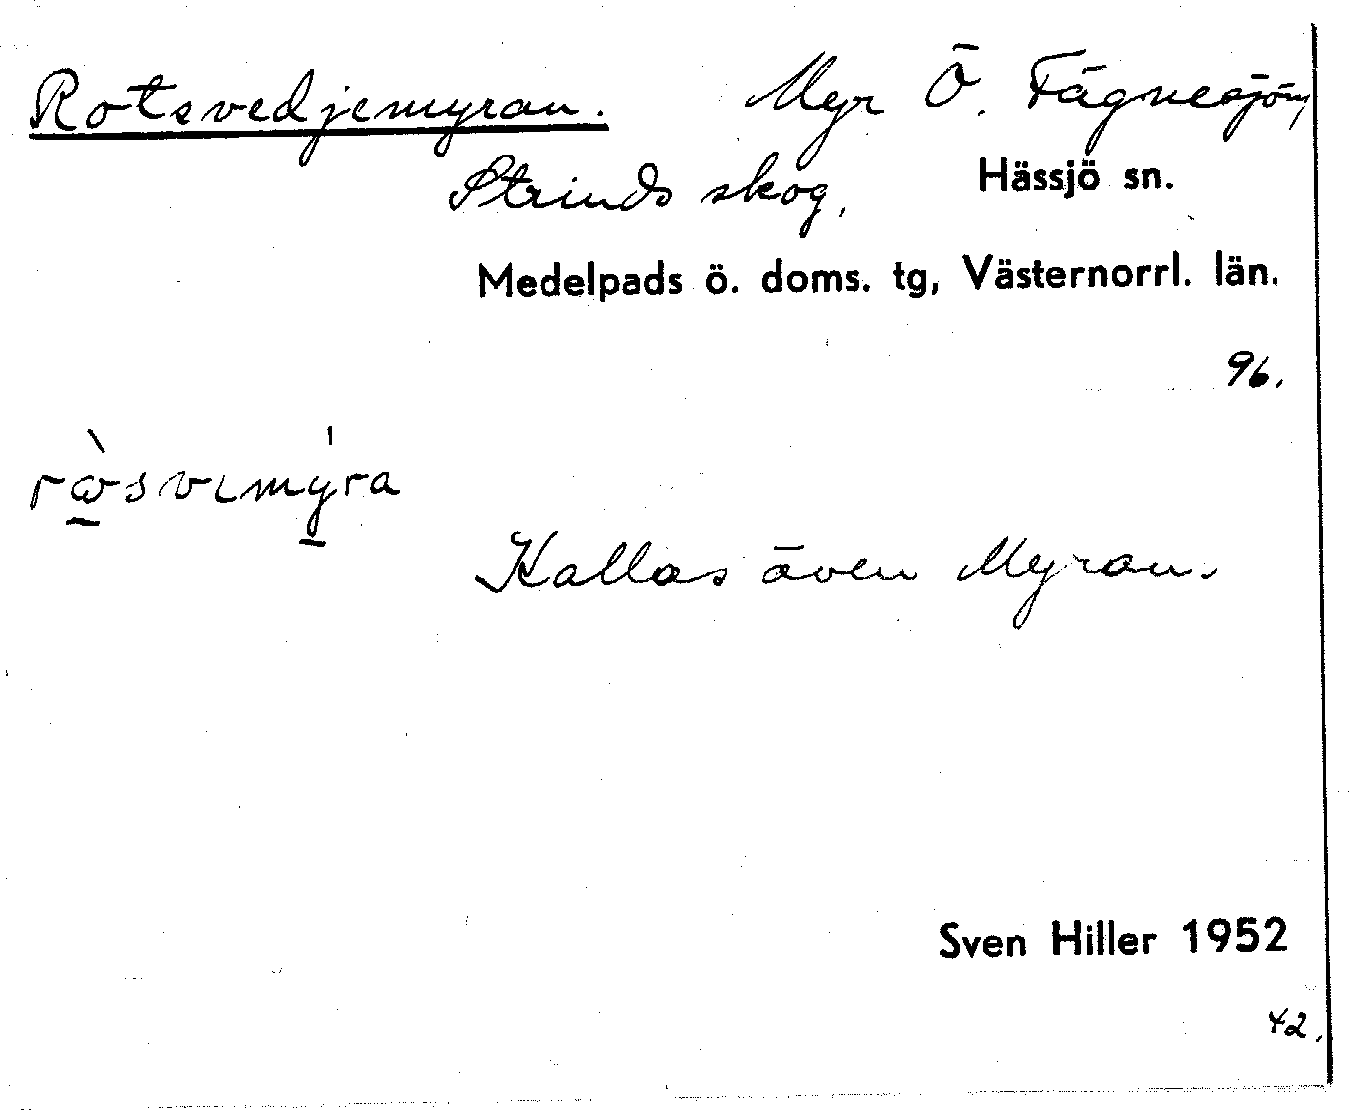 Rotsvedjemyran. Myr Ö. Fägnesjön,
Strinds skog, Hässjö sn.
Medelpads ö. doms. tg, Västernorrl. län.
96.
Kallas även Myran.
Sven Hiller 1952
42.